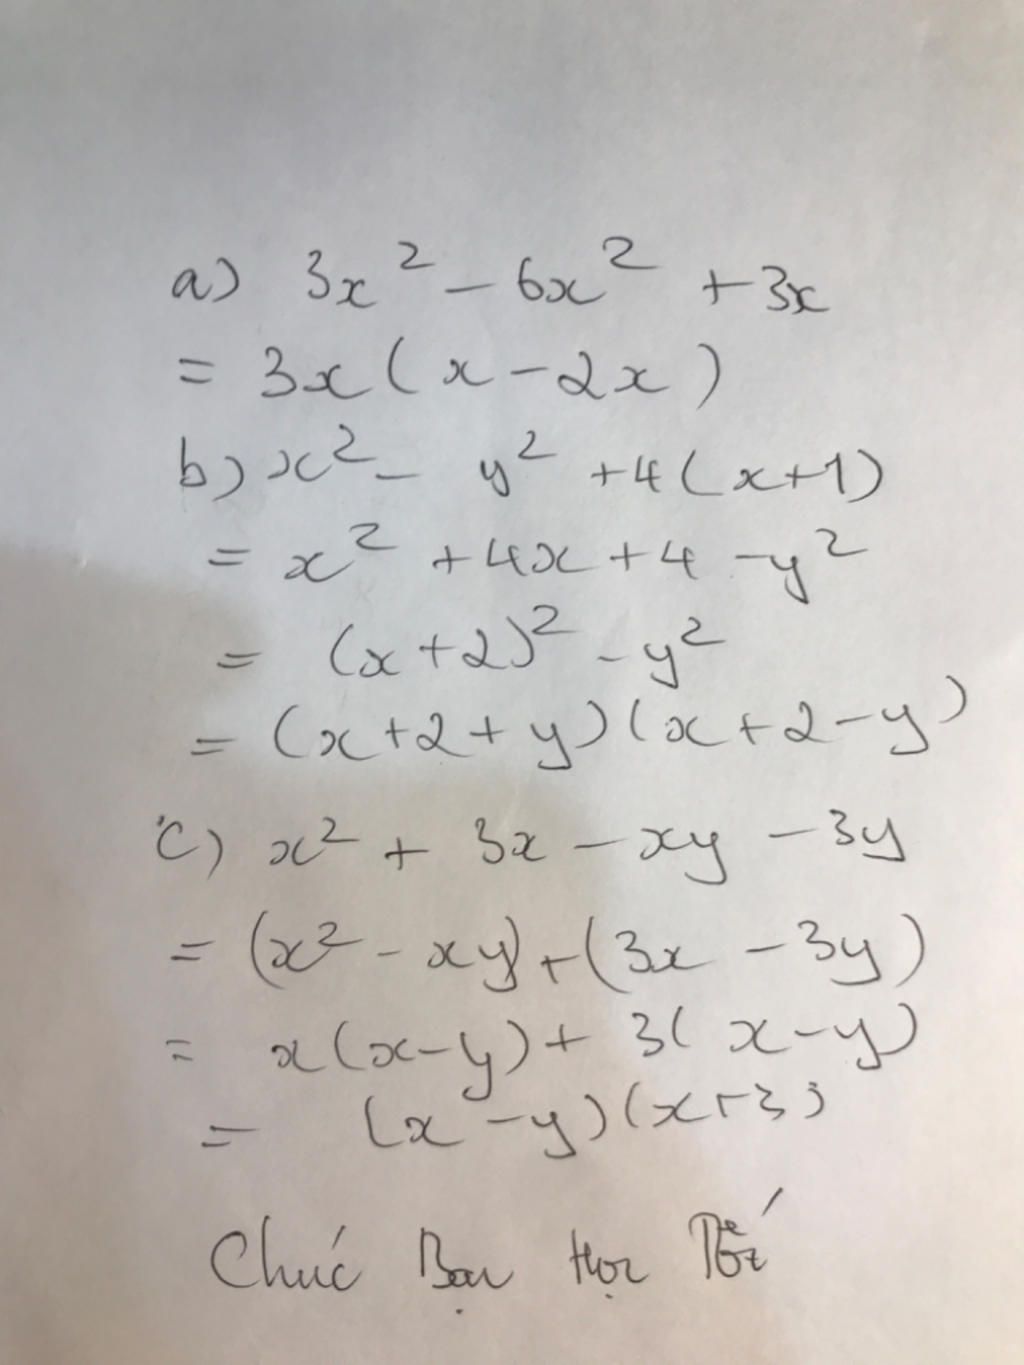 a) 3x² - 6x² + 3x
= 3x(x - 2x)
b) x² - y² + 4(x+1)
= x² + 4x + 4 - y²
= (x+2)² - y²
= (x+2+y)(x+2-y)
c) x² + 3x - xy - 3y
= (x² - xy) + (3x - 3y)
= x(x-y) + 3(x-y)
= (x-y)(x+3)
Chúc Bạn Học Tốt